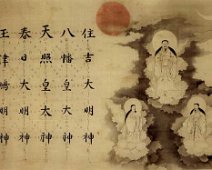 住吉大明神
八幡大皇神
天照皇太神
春日大明神
玉津嶋明神